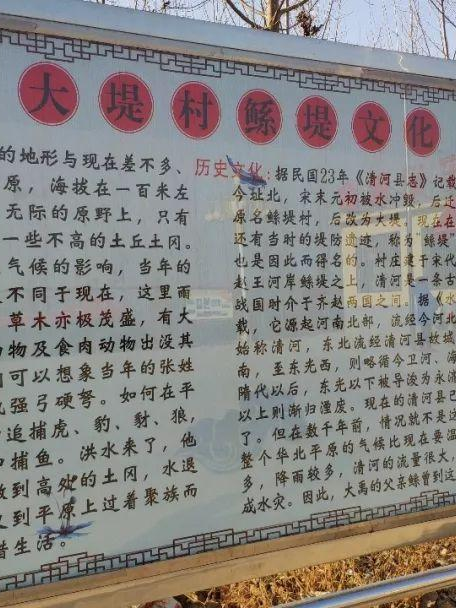 大堤村鲧堤文化
的地形与现在差不多、
原，海拔在一百米左
无际的原野上，只有
一些不高的土丘土冈。
气候的影响，当年的
不同于现在，这里雨
草木亦极茂盛，有大
动物及食肉动物出没其
可以想象当年的张姓
强弓硬弩。如何在平
追捕虎、豹、豺、狼，
捕鱼。洪水来了，他
到高处的土冈，水退
到平原上过着聚族而
生活。
历史文化：据民国23年《清河县志》记载
今址北，宋末元初被水冲毁，后迁
原名鲧堤村，后改为大堤。现在在
还有当时的堤防遗迹，称为"鲧堤"
也是因此而得名的。村庄建于宋代
赵王河岸鲧堤之上，清河是一条古
战国时介于齐赵两国之间。据《水
载，它源起河南北部，流经今河北
始称清河，东北流经清河县故城
南，至东光西，则略循今卫河、海
隋代以后，东光以下被导淩为永济
以上则渐归湮废。现在的清河县已
了。但在数千年前，情况就不是这
整个华北平原的气候比现在要温
多，降雨较多，清河的流量很大，
成水灾。因此，大禹的父亲鲧曾到这